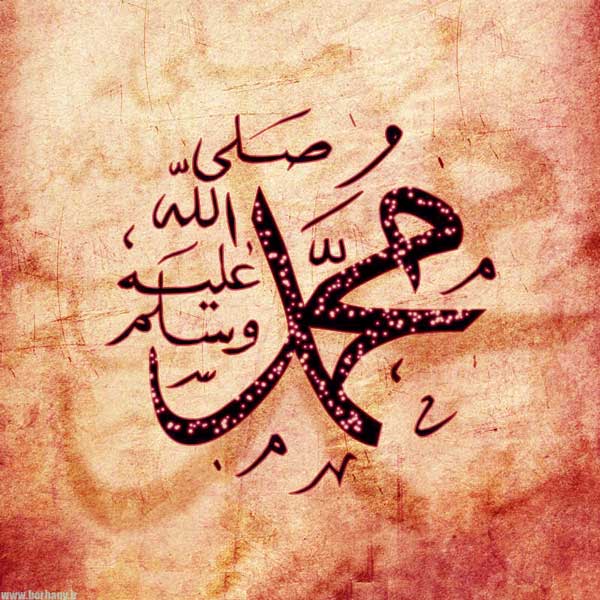 محمد
صلى
الله
عليه
وسلم
www.borhany.ir